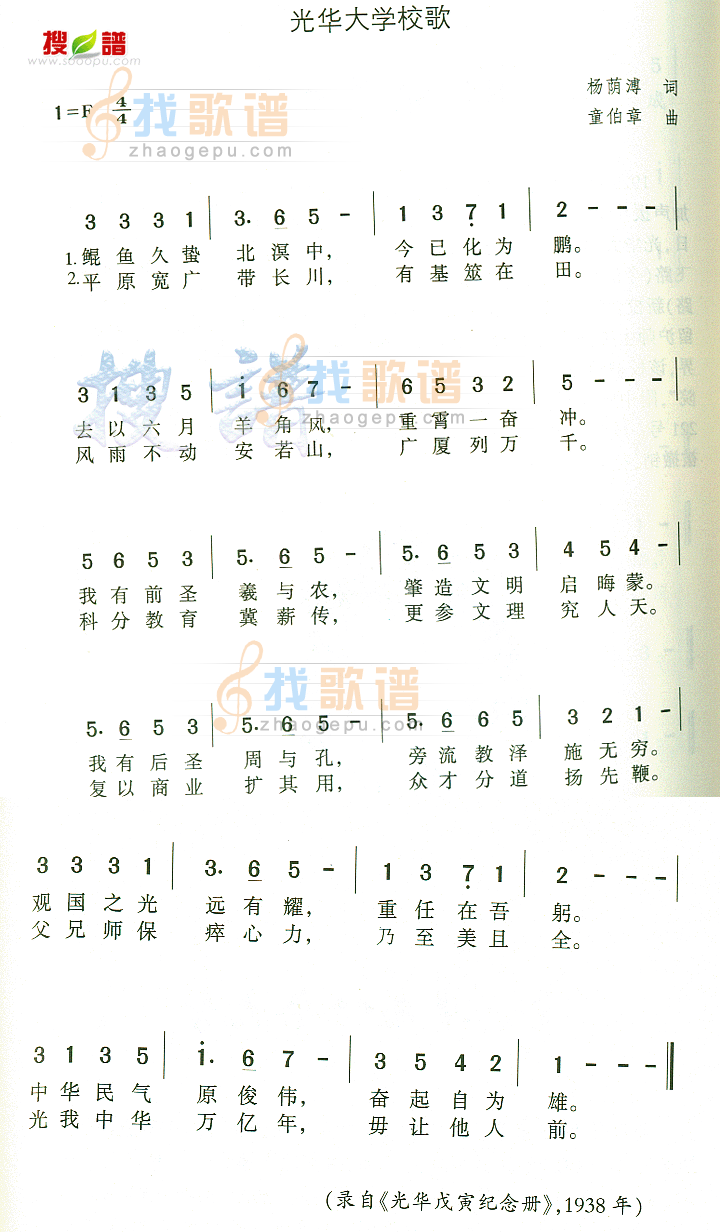 光华大学校歌
搜 谱
www.sooopu.com
杨荫溥 词
1=F 4/4
童伯章 曲
找歌谱
zhaogepu.com
3 3 3 1 | 3. 6 5 - | 1 3 7 1 | 2 - - -
1.鲲鱼久蛰 北溟中, 今已化为 鹏。
2.平原宽广 带长川, 有基筮在 田。
搜 谱 找歌谱
zhaogepu.com
3 1 3 5 | i 6 7 - | 6 5 3 2 | 5 - - -
去以六月 羊角风, 重霄一奋 冲。
风雨不动 安若山, 广厦列万 千。
5 6 5 3 | 5. 6 5 - | 5. 6 5 3 | 4 5 4 -
我有前圣 羲与农, 肇造文明 启晦蒙。
科分教育 冀薪传, 更参文理 究人天。
找歌谱
zhaogepu.com
5. 6 5 3 | 5. 6 5 - | 5. 6 6 5 | 3 2 1 -
我有后圣 周与孔, 旁流教泽 施无穷。
复以商业 扩其用, 众才分道 扬先鞭。
3 3 3 1 | 3. 6 5 - | 1 3 7 1 | 2 - - -
观国之光 远有耀, 重任在吾 躬。
父兄师保 瘁心力, 乃至美且 全。
3 1 3 5 | i. 6 7 - | 3 5 4 2 | 1 - - -
中华民气 原俊伟, 奋起自为 雄。
光我中华 万亿年, 毋让他人 前。
(录自《光华戊寅纪念册》,1938 年)